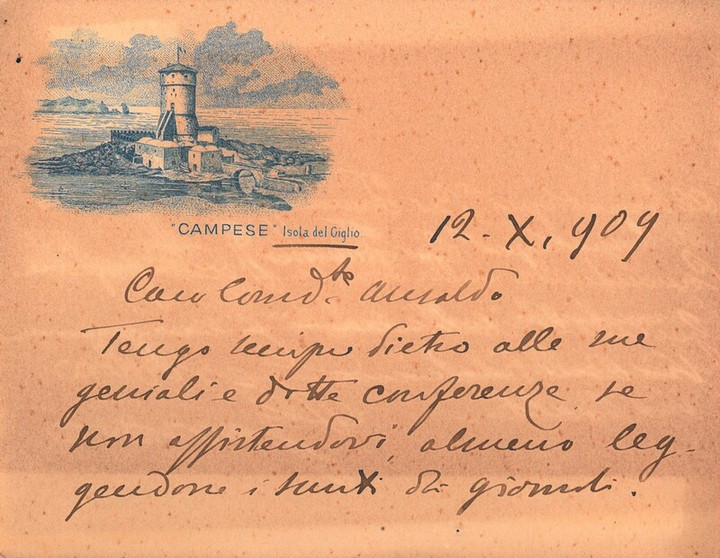 "CAMPESE" Isola del Giglio
12-X, 909
Caro Comdte Ansaldo
Tengo sempre dietro alle sue
geniali e dotte conferenze se
non assistendovi, almeno leg-
gendone i sunti di giornali.